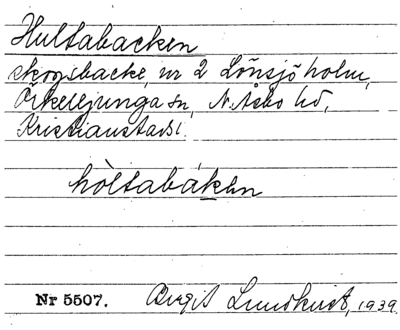 Hultabacken
skogsbacke, nr 2 Lönsjöholm,
Örkelljunga sn, N. Åsbo hd,
Kristianstads l.
hòltabákꬲn
Nr 5507. Birgit Lundkvist, 1939